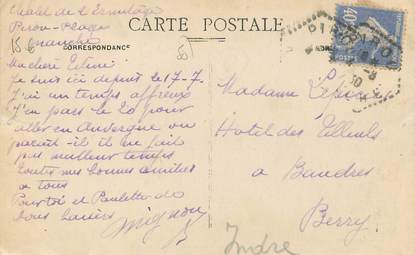 Chalet de l'Ermitage
Pirou-Plage
Manche
CARTE POSTALE
CORRESPONDANCE
Ma chère
Je suis ici depuis le 17-7.
J'ai un temps affreux
J'en pars le 20 pour
aller en Auvergne où
paraît-il il ne fait
pas meilleur temps
Toutes mes bonnes amitiés
à tous
Pour toi et Paulette de
bons baisers
Mignon
Madame
Hotel des Tilleuls
à Baudres
Berry
Indre
POSTES